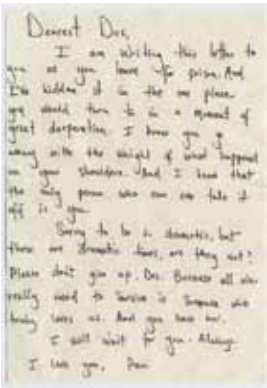 Dearest Des,
I am writing this letter to
you as you leave for prison. And
I've hidden it in the one place
you would turn to in a moment of
great desperation. I know you go
away with the weight of what happened
on your shoulders. And I know that
the only person who can take it
off is you.
Sorry to be so dramatic, but
these are dramatic times, are they not?
Please don't give up, Des. Because all we
really need to survive is someone who
truly loves us. And you have her.
I will wait for you. Always.
I love you, Pen